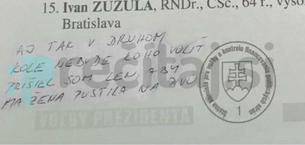 15. Ivan ZUZULA, RNDr., CSc., 64 r., vyso
Bratislava
AJ TAK V DRUHOM
KOLE NEBUDE KOHO VOLIŤ
PRIŠIEL SOM LEN ABY
MA ŽENA PUSTILA NA
čítaj.si
VOĽBY PREZIDENTA
1